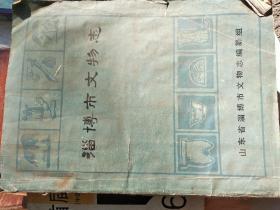 淄博市文物志
山东省淄博市文物志编纂组